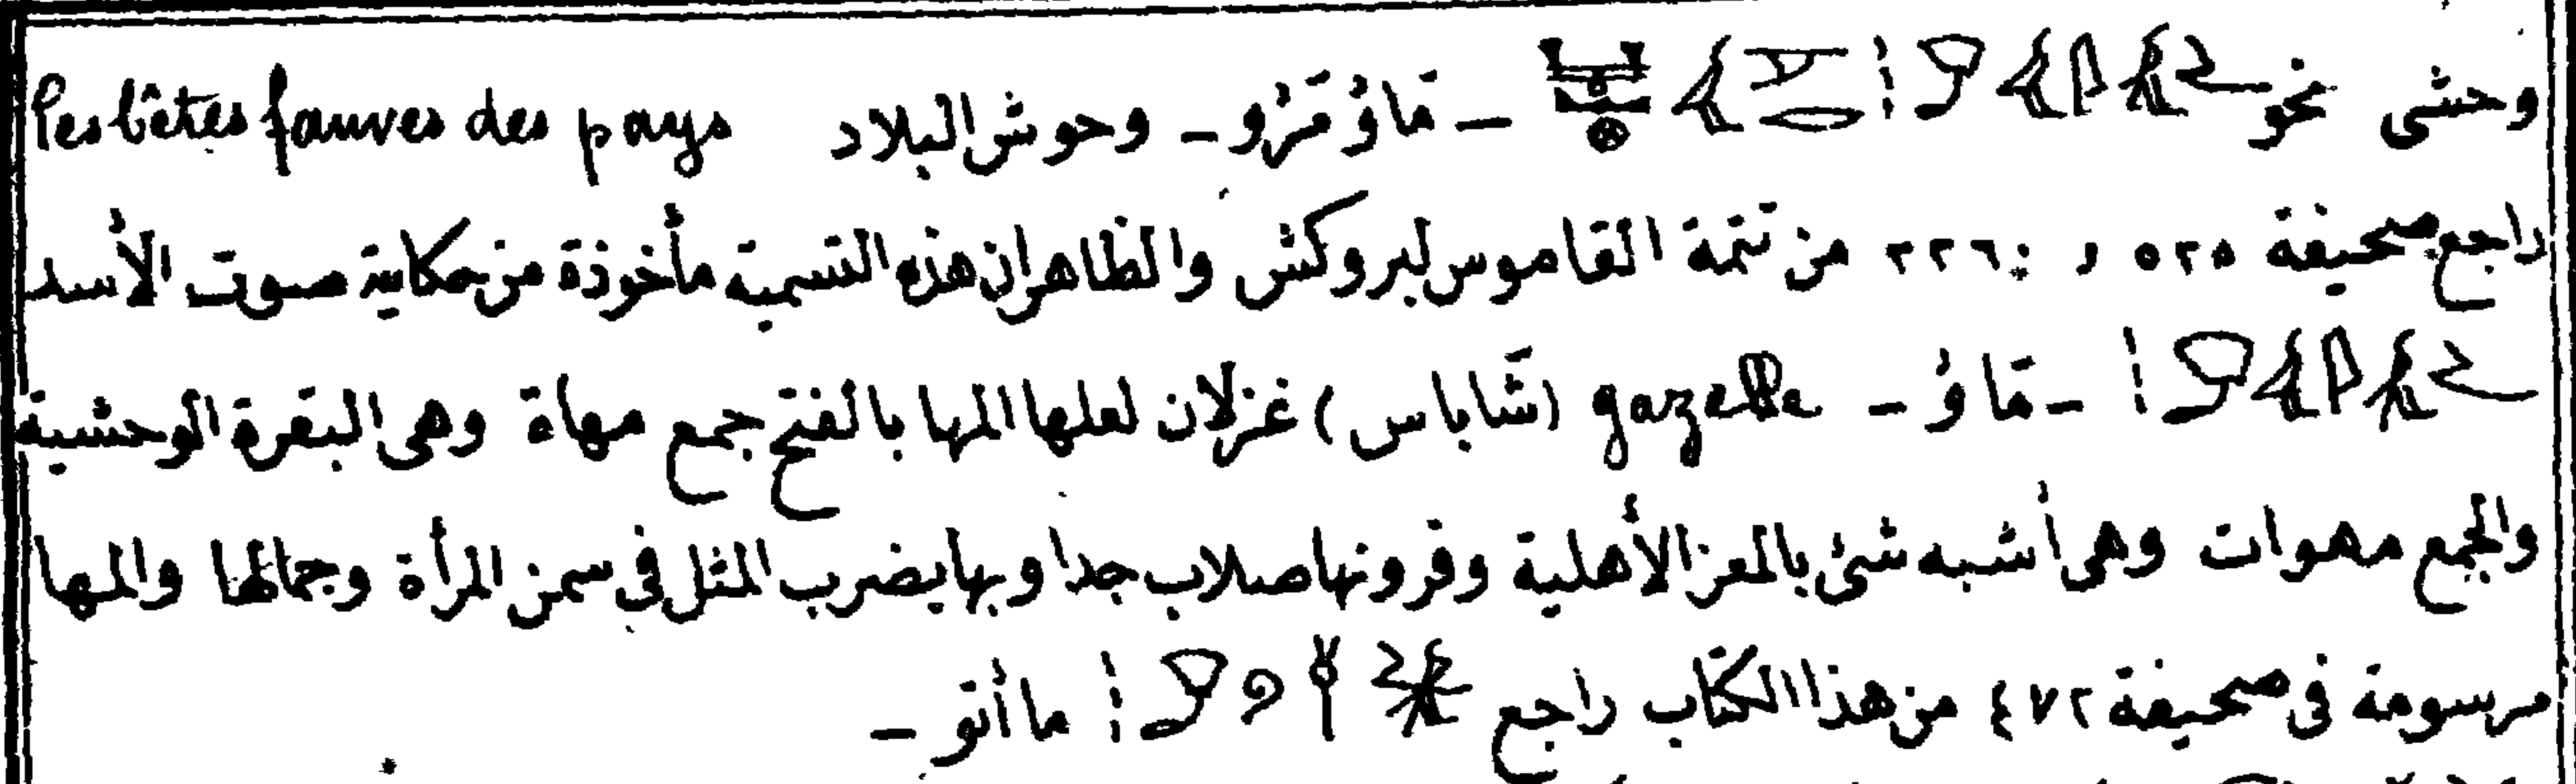 وحشى نحو - مَاوُ مَرُو - وحوش البلاد les bêtes fauves des pays
راجع صحيفة ٥٢٥ و ٢٢٦ من تتمة القاموس لبروكش والظاهران هذه التسمية مأخوذة من حكاية صوت الأسد
- مَاوُ - gazelle (شَاباس) غزلان لعلها المها بالفتح جمع مهاة وهى البقرة الوحشية
والجمع مهوات وهى أشبه شئ بالمعز الأهلية وقرونها صلاب جدا وبها يضرب المثل فى سمن المرأة وجمالها والمها
مرسومة فى صحيفة ٤٧٢ من هذا الكتاب راجع ما أتو -